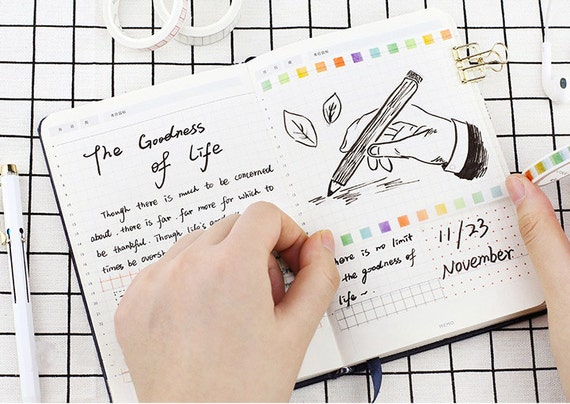 The Goodness
of Life
Though there is much to be concerned
about there is far far more for which to
be thankful. Though life's
times be overs
here is no limit
the goodness of
life ~
11/23
November
MEMO